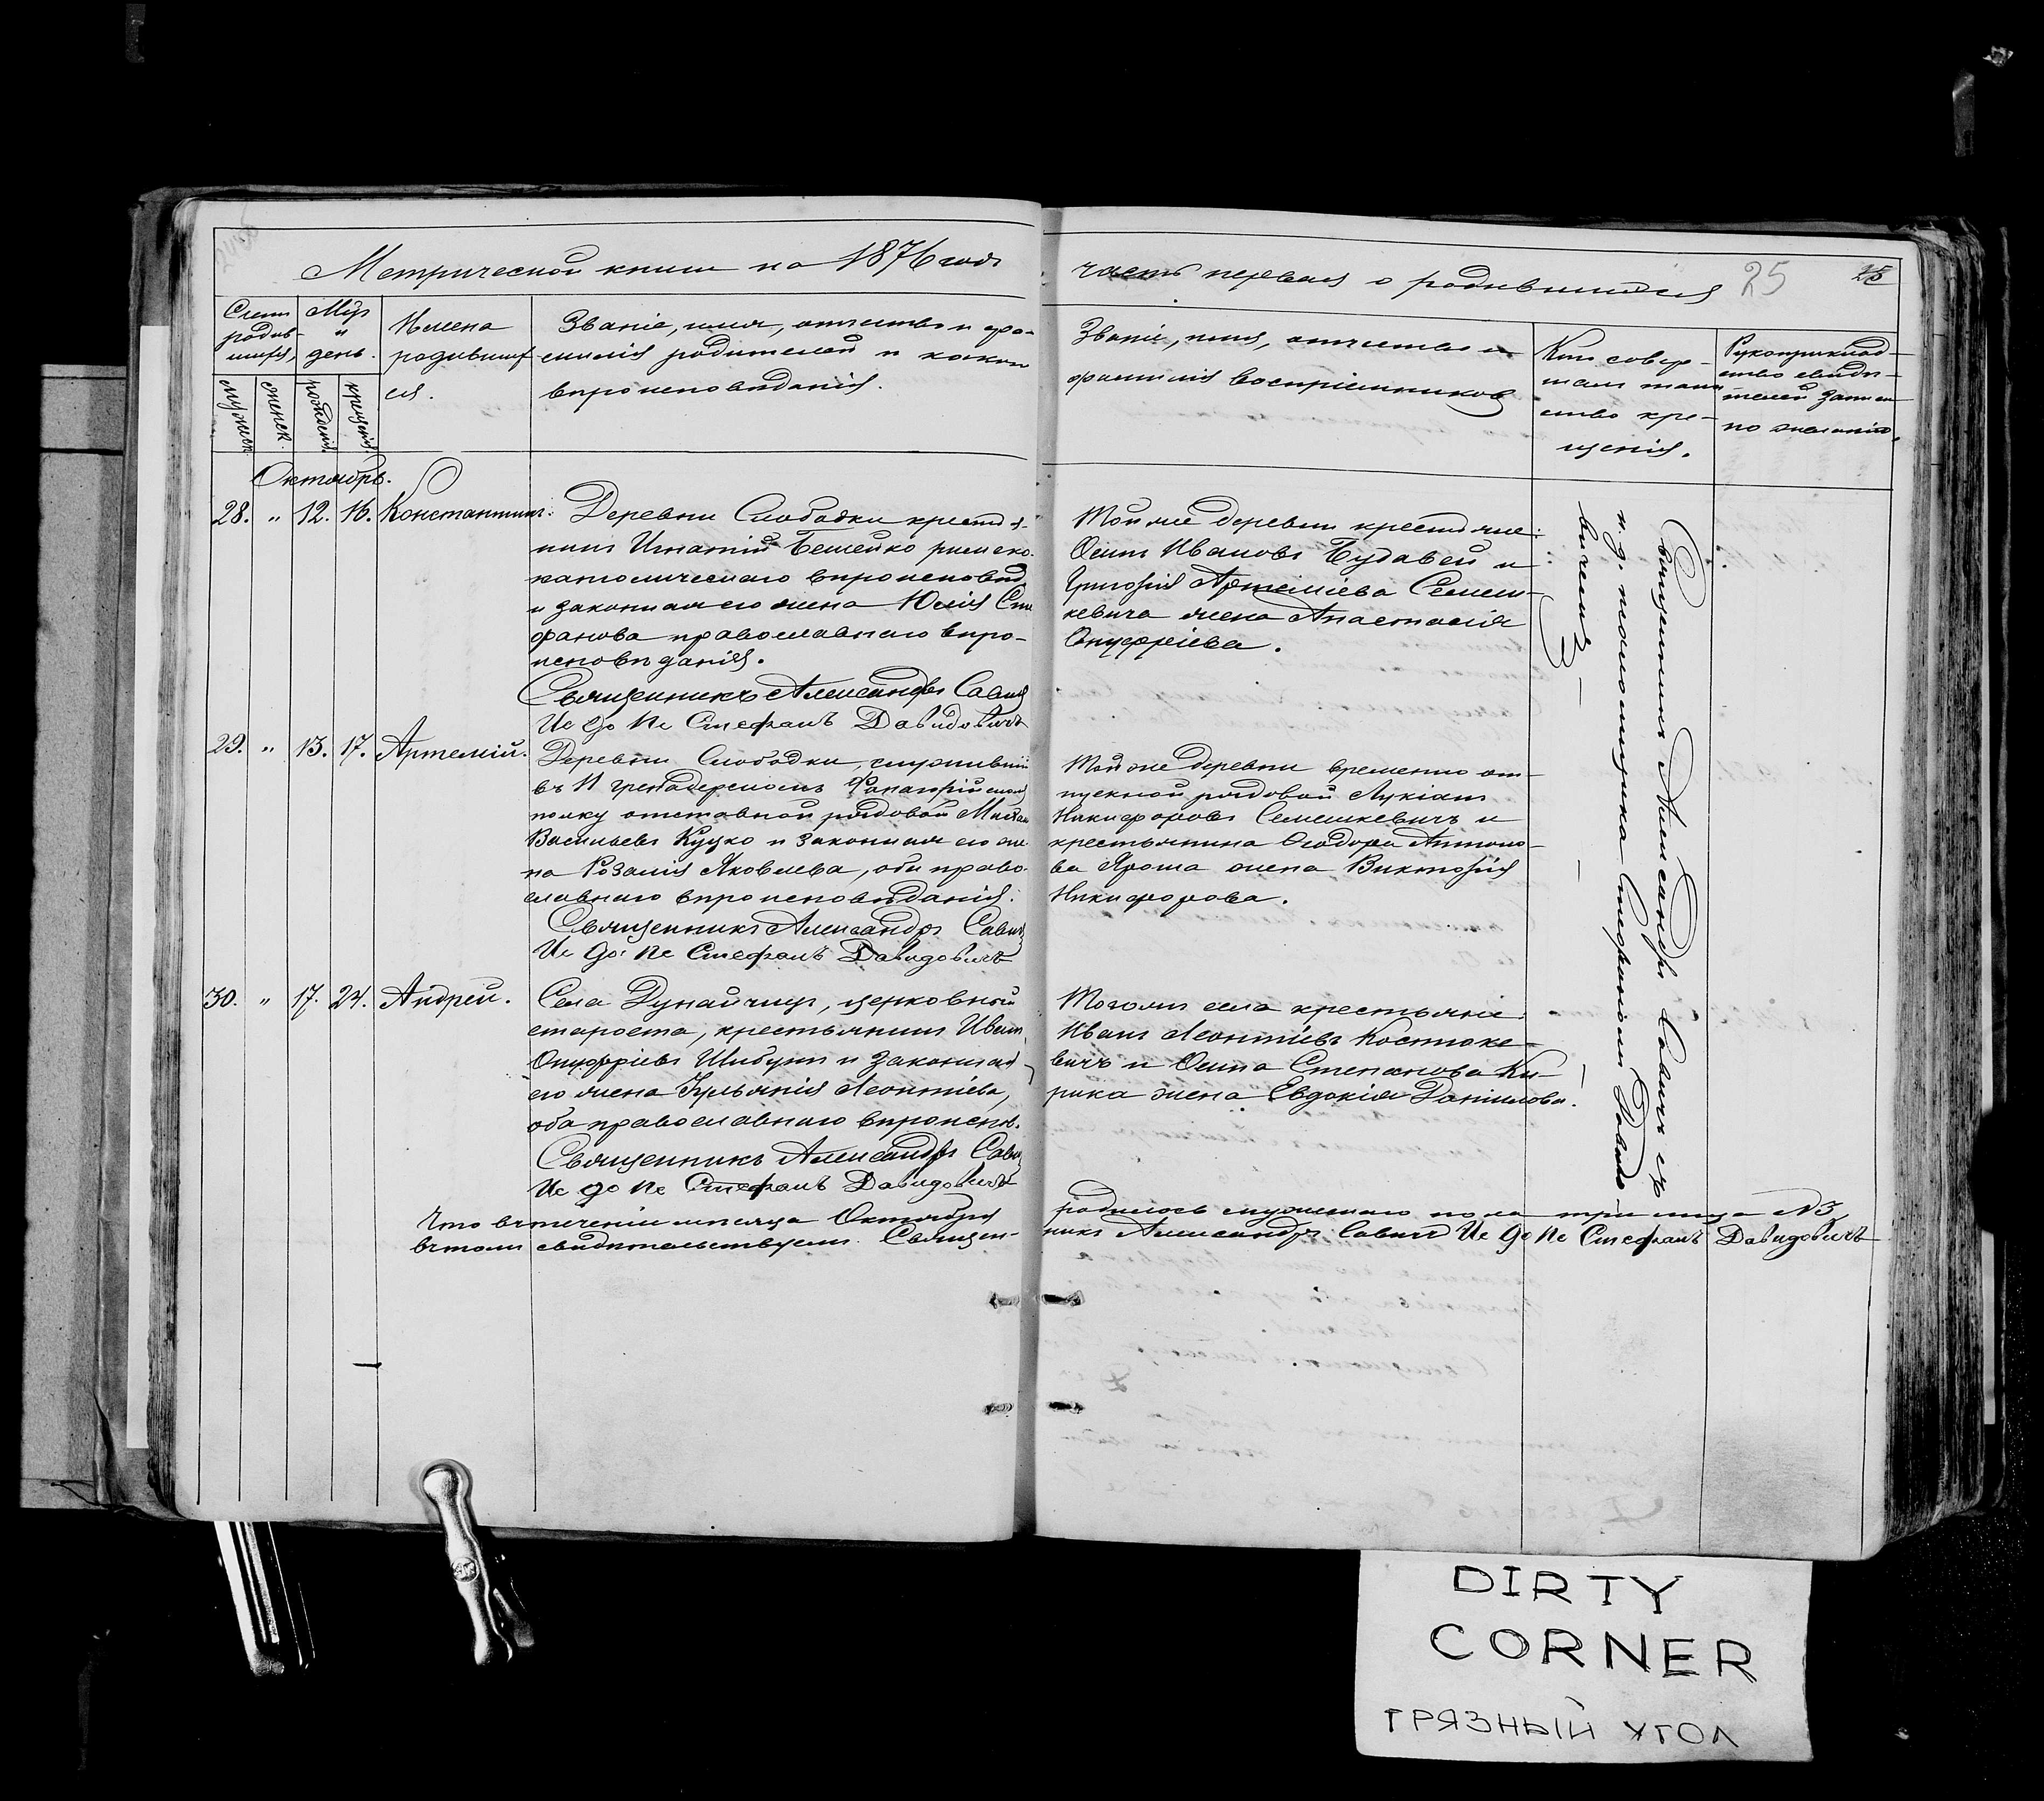 Метрической книги на 1876 годъ
часть первая о родившихся 25
25
Счетъ родив-
шихся,
Мцъ
и
день.
Имена
родивших
ся.
Званіе, имя, отчество и фа-
милія родителей и какого
вѣроисповѣданія.
Званіе, имя, отчество и
фамилія воспріемниковъ
Кто совер-
шалъ таин
ство кре-
щенія.
Рукоприклад-
ство свидѣ-
телей записи
по желанію.
мужеск.
женск.
рожденія
крещенія
Октябрь.
28. " 12. 16. Константинъ.
Деревни Слободки крестья-
нинъ Игнатій Бемейко римско.
католическаго вѣроисповѣд
и законная его жена Юлія Сте
фанова православнаго вѣро-
исповѣданія.
Священникъ Александръ Савич
Ис до Пс Стефанъ Давидовичъ
Той же деревни крестьяне:
Осипъ Ивановъ Будавей и
Григорія Артеміева Семеш-
кевича жена Анастасія
Онуфріева.
29. " 13. 17. Артемій.
Деревни Слободки, служившій
въ 11 гренадерскомъ Фанагорійском
полку отставной рядовой Михаил
Васильевъ Куцко и законная его же
на Розалія Яковлева, оба право-
славнаго вѣроисповѣданія.
Священникъ Александръ Савич
Ис до Пс Стефанъ Давидовичъ
Той же деревни временно от-
пускной рядовой Лукіанъ
Никифоровъ Семешкевичъ и
крестьянина Ѳеодора Антоно-
ва Яроша жена Викторія
Никифорова.
30. " 17. 24. Андрей.
Села Дунайчицъ, церковный
староста, крестьянинъ Иванъ
Онуфріевъ Шибутъ и законная
его жена Ульянія Леонтіева,
оба православнаго вѣроиспов.
Священникъ Александръ Савич
Ис до Пс Стефанъ Давидовичъ
Тогоже села крестьяне:
Иванъ Леонтіевъ Костюке-
вичъ и Осипа Степанова Ки-
рика жена Евдокія Даніилова.
Священникъ Александръ Савичъ съ
и. д. псаломщика Стефаномъ Давидо-
вичемъ
Что въ теченіи мѣсяца Октября родилось мужескаго пола три лица №3,
въ томъ свидѣтельствуемъ. Священ- никъ Александръ Савичъ Ис до Пс Стефанъ Давидовичъ
DIRTY
CORNER
ГРЯЗНЫЙ УГОЛ